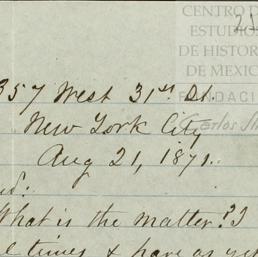 CENTRO D
ESTUDIOS
DE HISTOR
DE MEXIC
FUNDACI
Carlos Sl
357 West 31st St.
New York City
Aug 21, 1871.
What is the matter?I
times & have as yet